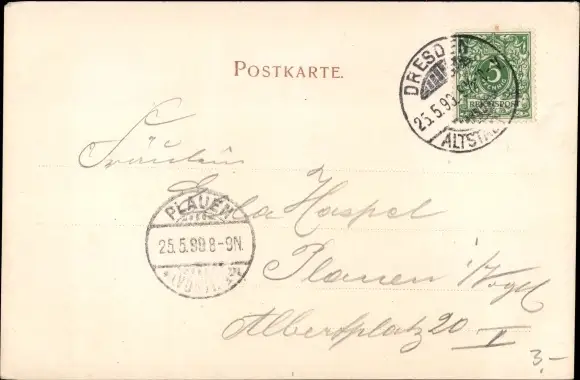 POSTKARTE.
DRESDEN
25.5.99
ALTSTADT
5
REICHSPOST
Fräulein
Haspel
PLAUEN
25.5.99.8-9N.
Plauen i/Vogtl
Albertplatz 20 I
3,-